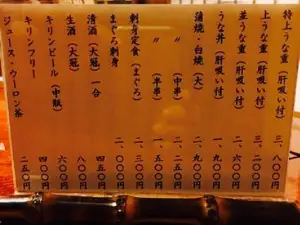 特上うな重（肝吸い付）　三、八〇〇円
上うな重（肝吸い付）　三、二〇〇円
並うな重（肝吸い付）　二、六〇〇円
うな丼（肝吸い付）　一、九〇〇円
蒲焼・白焼（大）　二、九〇〇円
〃（中串）　二、五〇〇円
〃（半串）　一、五〇〇円
刺身定食（まぐろ）　二、三〇〇円
まぐろ刺身　二、〇〇〇円
清酒（大冠）一合　四五〇円
生酒（大冠）　八〇〇円
キリンビール（中瓶）　六〇〇円
キリンフリー　四〇〇円
ジュース・ウーロン茶　二五〇円